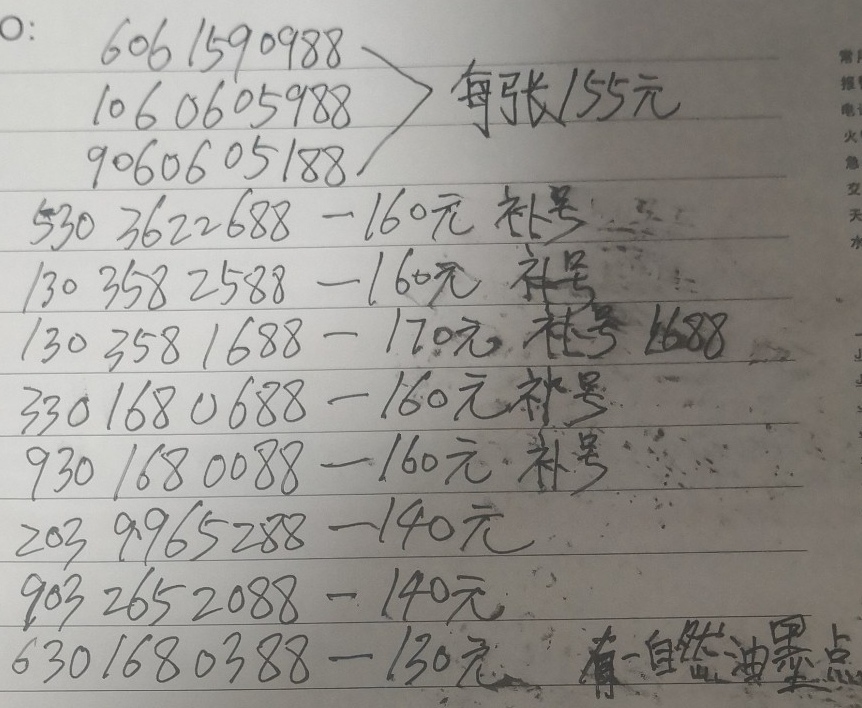 O:
6061590988
1060605988 每张155元
9060605188
530 3622688 — 160元 补号
130 358 2588 — 160元 补号
130 358 1688 — 170元 补号 1688
330 168 0688 — 160元 补号
930 168 0088 — 160元 补号
203 9965288 — 140元
903 2652088 — 140元
6301680388 — 130元 有一自然油墨点
常用
报
电
火
急
交
天
水